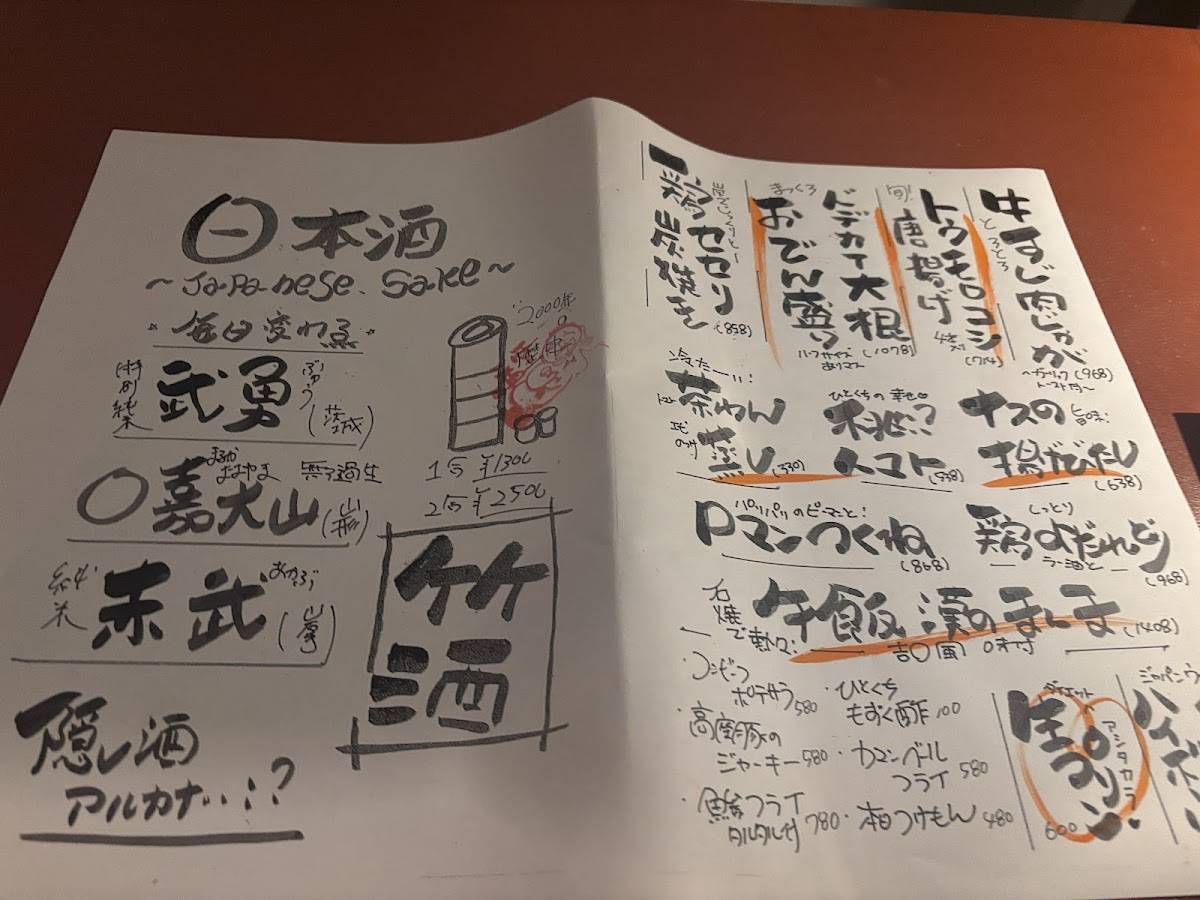 日本酒
~Japanese. Sake~
毎日変わる
特別純米
武勇
ぶゆう
(茨城)
まるか
おおやま
無ろ過生
〇嘉大山
(山形)
純米
赤武
あかぶ
(岩手)
隠し酒
アルカナ…?
2000年
1合 ¥1300
2合 ¥2500
竹酒
牛すじ肉じゃが
とろとろ
(968)
~ガーリックトースト付~
旬!
トウモロコシ
唐揚げ
4本入り
(714)
まっくろ
ドデカイ大根
おでん盛り
ハーフサイズあります
(1078)
鶏セセリ
炭焼き
(858)
冷たーい:
茶わん
蒸し
(330)
ひとくちの幸せ
桃!?
トマト
(538)
ナスの
旨味:
揚げびたし
(638)
パリパリのピーマンと!
ロマンつくね
(868)
しっとり
鶏よだれどり
ラー油と
(968)
石焼
で熱々:
牛飯 漢のまんま
(1408)
・コンビーフ
ポテサラ 580
・高座豚の
ジャーキー 580
・鯵フライ
タルタル付 780
・ひとくち
もずく酢 100
・カマンベール
フライ 580
・本日つけもん 480
ダイエット
生プリン
アシタカラ
600
ジャパンウ
ハイボ